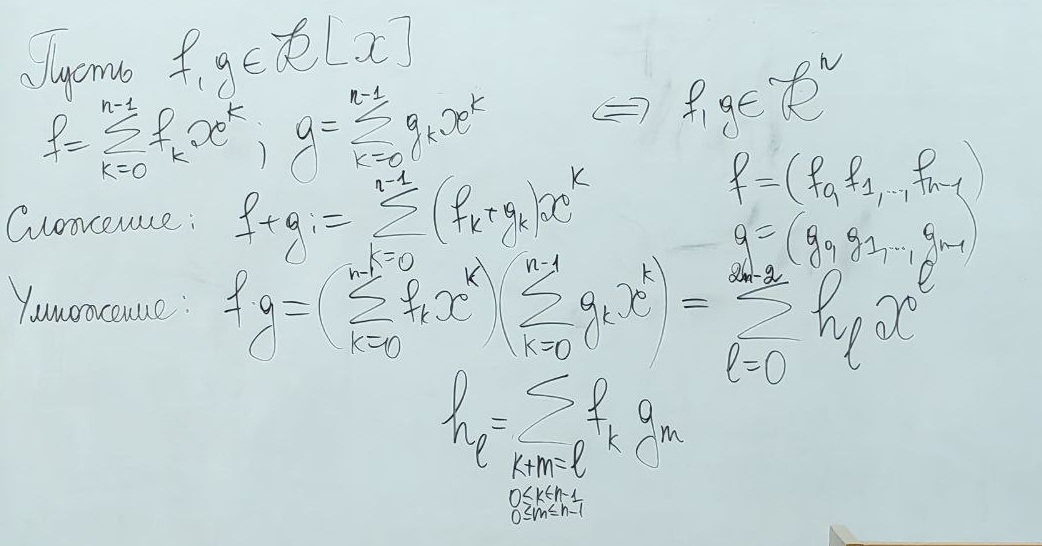 Пусть f, g ∈ R[x]
f = ∑_{k=0}^{n-1} f_k x^k ; g = ∑_{k=0}^{n-1} g_k x^k ⇔ f, g ∈ R^n
f = (f_0, f_1, ..., f_{n-1})
Сложение: f + g := ∑_{k=0}^{n-1} (f_k + g_k) x^k
g = (g_0, g_1, ..., g_{n-1})
Умножение: f · g = (∑_{k=0}^{n-1} f_k x^k) (∑_{k=0}^{n-1} g_k x^k) = ∑_{l=0}^{2n-2} h_l x^l
h_l = ∑_{k+m=l, 0≤k≤n-1, 0≤m≤n-1} f_k g_m